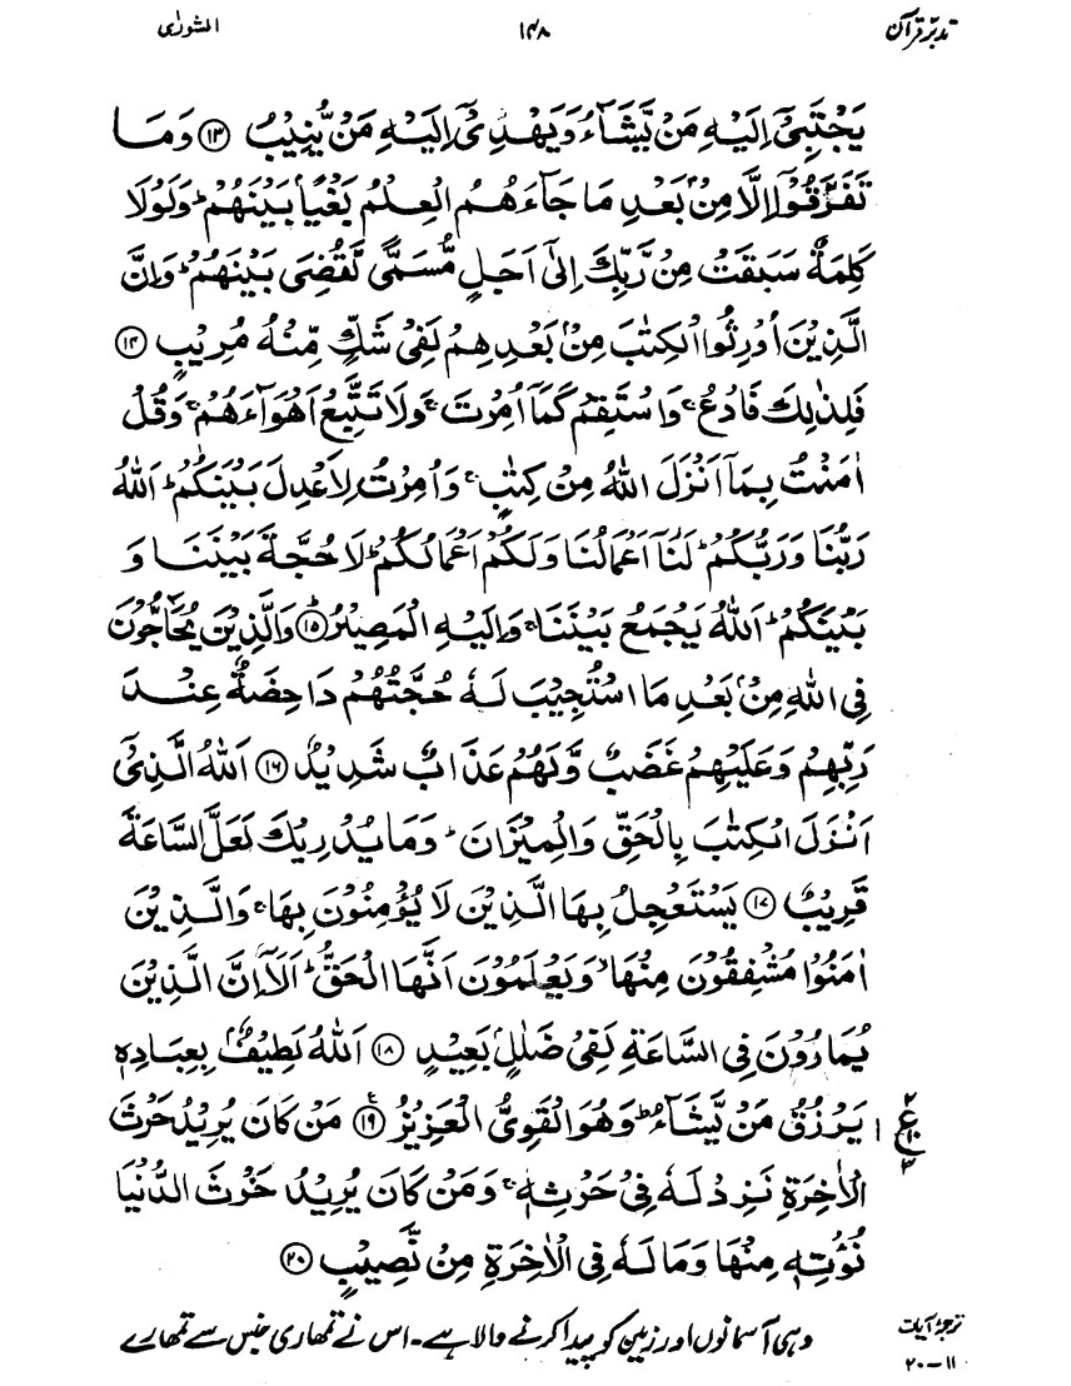 تدبّرِ قرآن ۱۴۸ الشورٰی
يَجْتَبِيْٓ اِلَيْهِ مَنْ يَّشَآءُ وَيَهْدِيْٓ اِلَيْهِ مَنْ يُّنِيْبُ ⑬ وَمَا
تَفَرَّقُوْٓا اِلَّا مِنْۢ بَعْدِ مَا جَآءَهُمُ الْعِلْمُ بَغْيًاۢ بَيْنَهُمْ ؕ وَلَوْلَا
كَلِمَةٌ سَبَقَتْ مِنْ رَّبِّكَ اِلٰٓى اَجَلٍ مُّسَمًّى لَّقُضِيَ بَيْنَهُمْ ؕ وَاِنَّ
الَّذِيْنَ اُوْرِثُوا الْكِتٰبَ مِنْۢ بَعْدِهِمْ لَفِيْ شَكٍّ مِّنْهُ مُرِيْبٍ ⑭
فَلِذٰلِكَ فَادْعُ ۚ وَاسْتَقِمْ كَمَآ اُمِرْتَ ۚ وَلَا تَتَّبِعْ اَهْوَآءَهُمْ ۚ وَقُلْ
اٰمَنْتُ بِمَآ اَنْزَلَ اللّٰهُ مِنْ كِتٰبٍ ۚ وَاُمِرْتُ لِاَعْدِلَ بَيْنَكُمْ ؕ اَللّٰهُ
رَبُّنَا وَرَبُّكُمْ ؕ لَنَآ اَعْمَالُنَا وَلَكُمْ اَعْمَالُكُمْ ؕ لَا حُجَّةَ بَيْنَنَا وَ
بَيْنَكُمْ ؕ اَللّٰهُ يَجْمَعُ بَيْنَنَا ۚ وَاِلَيْهِ الْمَصِيْرُ ⑮ؕ وَالَّذِيْنَ يُحَآجُّوْنَ
فِي اللّٰهِ مِنْۢ بَعْدِ مَا اسْتُجِيْبَ لَهٗ حُجَّتُهُمْ دَاحِضَةٌ عِنْدَ
رَبِّهِمْ وَعَلَيْهِمْ غَضَبٌ وَّلَهُمْ عَذَابٌ شَدِيْدٌ ⑯ اَللّٰهُ الَّذِيْٓ
اَنْزَلَ الْكِتٰبَ بِالْحَقِّ وَالْمِيْزَانَ ؕ وَمَا يُدْرِيْكَ لَعَلَّ السَّاعَةَ
قَرِيْبٌ ⑰ يَسْتَعْجِلُ بِهَا الَّذِيْنَ لَا يُؤْمِنُوْنَ بِهَا ۚ وَالَّذِيْنَ
اٰمَنُوْا مُشْفِقُوْنَ مِنْهَا ۙ وَيَعْلَمُوْنَ اَنَّهَا الْحَقُّ ؕ اَلَآ اِنَّ الَّذِيْنَ
يُمَارُوْنَ فِي السَّاعَةِ لَفِيْ ضَلٰلٍۢ بَعِيْدٍ ⑱ اَللّٰهُ لَطِيْفٌۢ بِعِبَادِهٖ
يَرْزُقُ مَنْ يَّشَآءُ ؕ وَهُوَ الْقَوِيُّ الْعَزِيْزُ ⑲ مَنْ كَانَ يُرِيْدُ حَرْثَ
الْاٰخِرَةِ نَزِدْ لَهٗ فِيْ حَرْثِهٖ ۚ وَمَنْ كَانَ يُرِيْدُ حَرْثَ الدُّنْيَا
نُؤْتِهٖ مِنْهَا وَمَا لَهٗ فِي الْاٰخِرَةِ مِنْ نَّصِيْبٍ ⑳
ترجمۂ آیات وہی آسمانوں اور زمین کو پیدا کرنے والا ہے۔ اس نے تمھاری جنس سے تمھارے
۱۱-۲۰